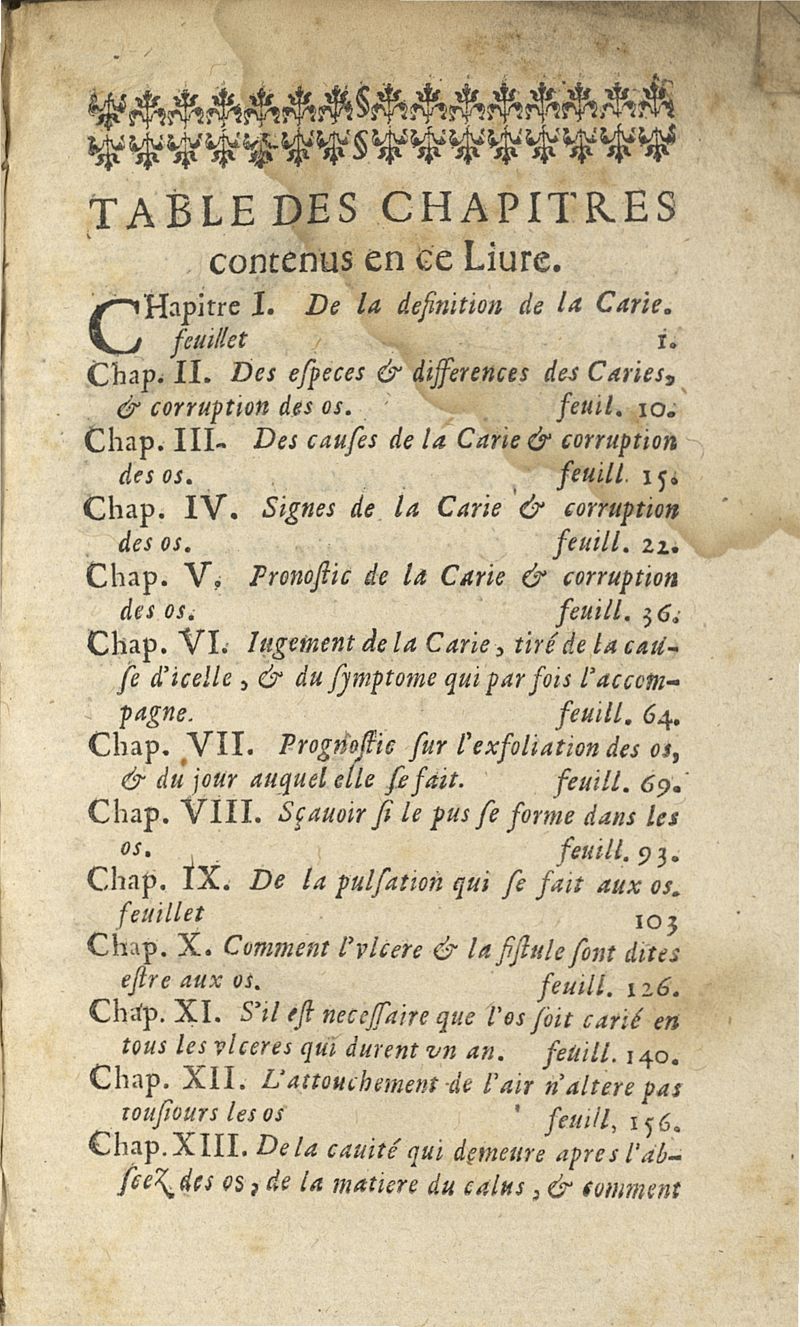 TABLE DES CHAPITRES
contenus en ce Liure.
CHapitre I. De la definition de la Carie.
feuillet 1.
Chap. II. Des eſpeces & differences des Caries,
& corruption des os. feuil. 10.
Chap. III. Des cauſes de la Carie & corruption
des os. feuill. 15.
Chap. IV. Signes de la Carie & corruption
des os. feuill. 22.
Chap. V. Pronoſtic de la Carie & corruption
des os. feuill. 36.
Chap. VI. Iugement de la Carie, tiré de la cau-
ſe d'icelle, & du ſymptome qui par fois l'accom-
pagne. feuill. 64.
Chap. VII. Prognoſtic ſur l'exfoliation des os,
& du jour auquel elle ſe fait. feuill. 69.
Chap. VIII. Sçauoir ſi le pus ſe forme dans les
os. feuill. 93.
Chap. IX. De la pulſation qui ſe fait aux os.
feuillet 103
Chap. X. Comment l'vlcere & la fiſtule ſont dites
eſtre aux os. feuill. 126.
Chap. XI. S'il eſt neceſſaire que l'os ſoit carié en
tous les vlceres qui durent vn an. feuill. 140.
Chap. XII. L'attouchement de l'air n'altere pas
touſiours les os feuill, 156.
Chap. XIII. De la cauité qui demeure apres l'ab-
ſcez des os, de la matiere du calus, & comment